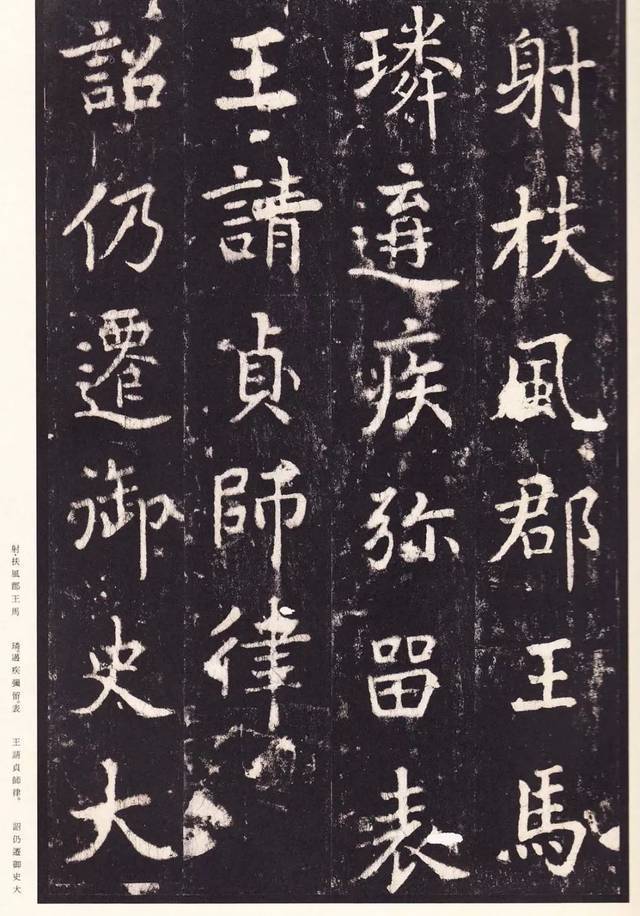 射扶風郡王馬
璘遘疾弥留表
王請貞師律
詔仍遷御史大
射·扶風郡王馬 璘。遘疾彌留。表 王請貞師律。 詔仍遷御史大